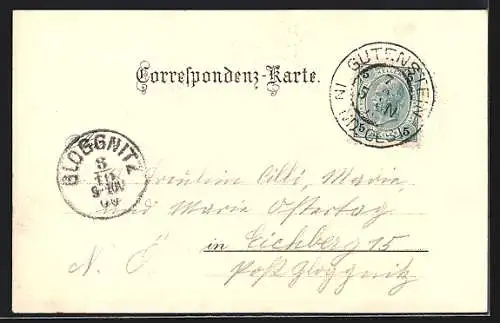 Correspondenz-Karte.
GUTENSTEIN IN
GLOGGNITZ
8
10
00
Fräulein Cilli, Marie,
und Marie Ostertag
in Eichberg 15
N. Ö. Post Gloggnitz